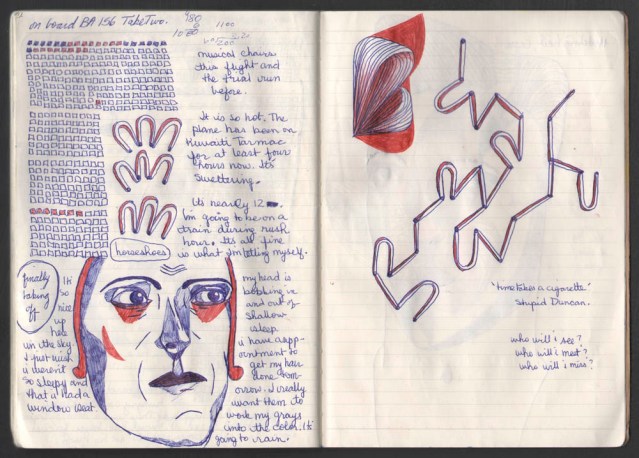 on board BA 156 Take Two.
980
1100
1080
200
musical chairs
this flight and
the trial run
before.
It is so hot. The
plane has been on
Kuwaiti Tarmac
for at least four
hours now. Its
Sweltering.
Its nearly 12
I'm going to be on a
train during rush
hour. Its all fine
is what I'm telling myself.
horseshoes
finally
taking
off
It's
so
nice
up
here
in the sky.
I just wish
i weren't
so sleepy and
that i had a
window seat.
my head is
bobbing in
and out of
shallow
sleep.
i have a app-
ointment to
get my hair
done tom-
orrow. I really
want them to
work my grays
into the color. It's
going to rain.
"time takes a cigarette"
stupid Duncan.
who will i see?
who will i meet?
who will i miss?